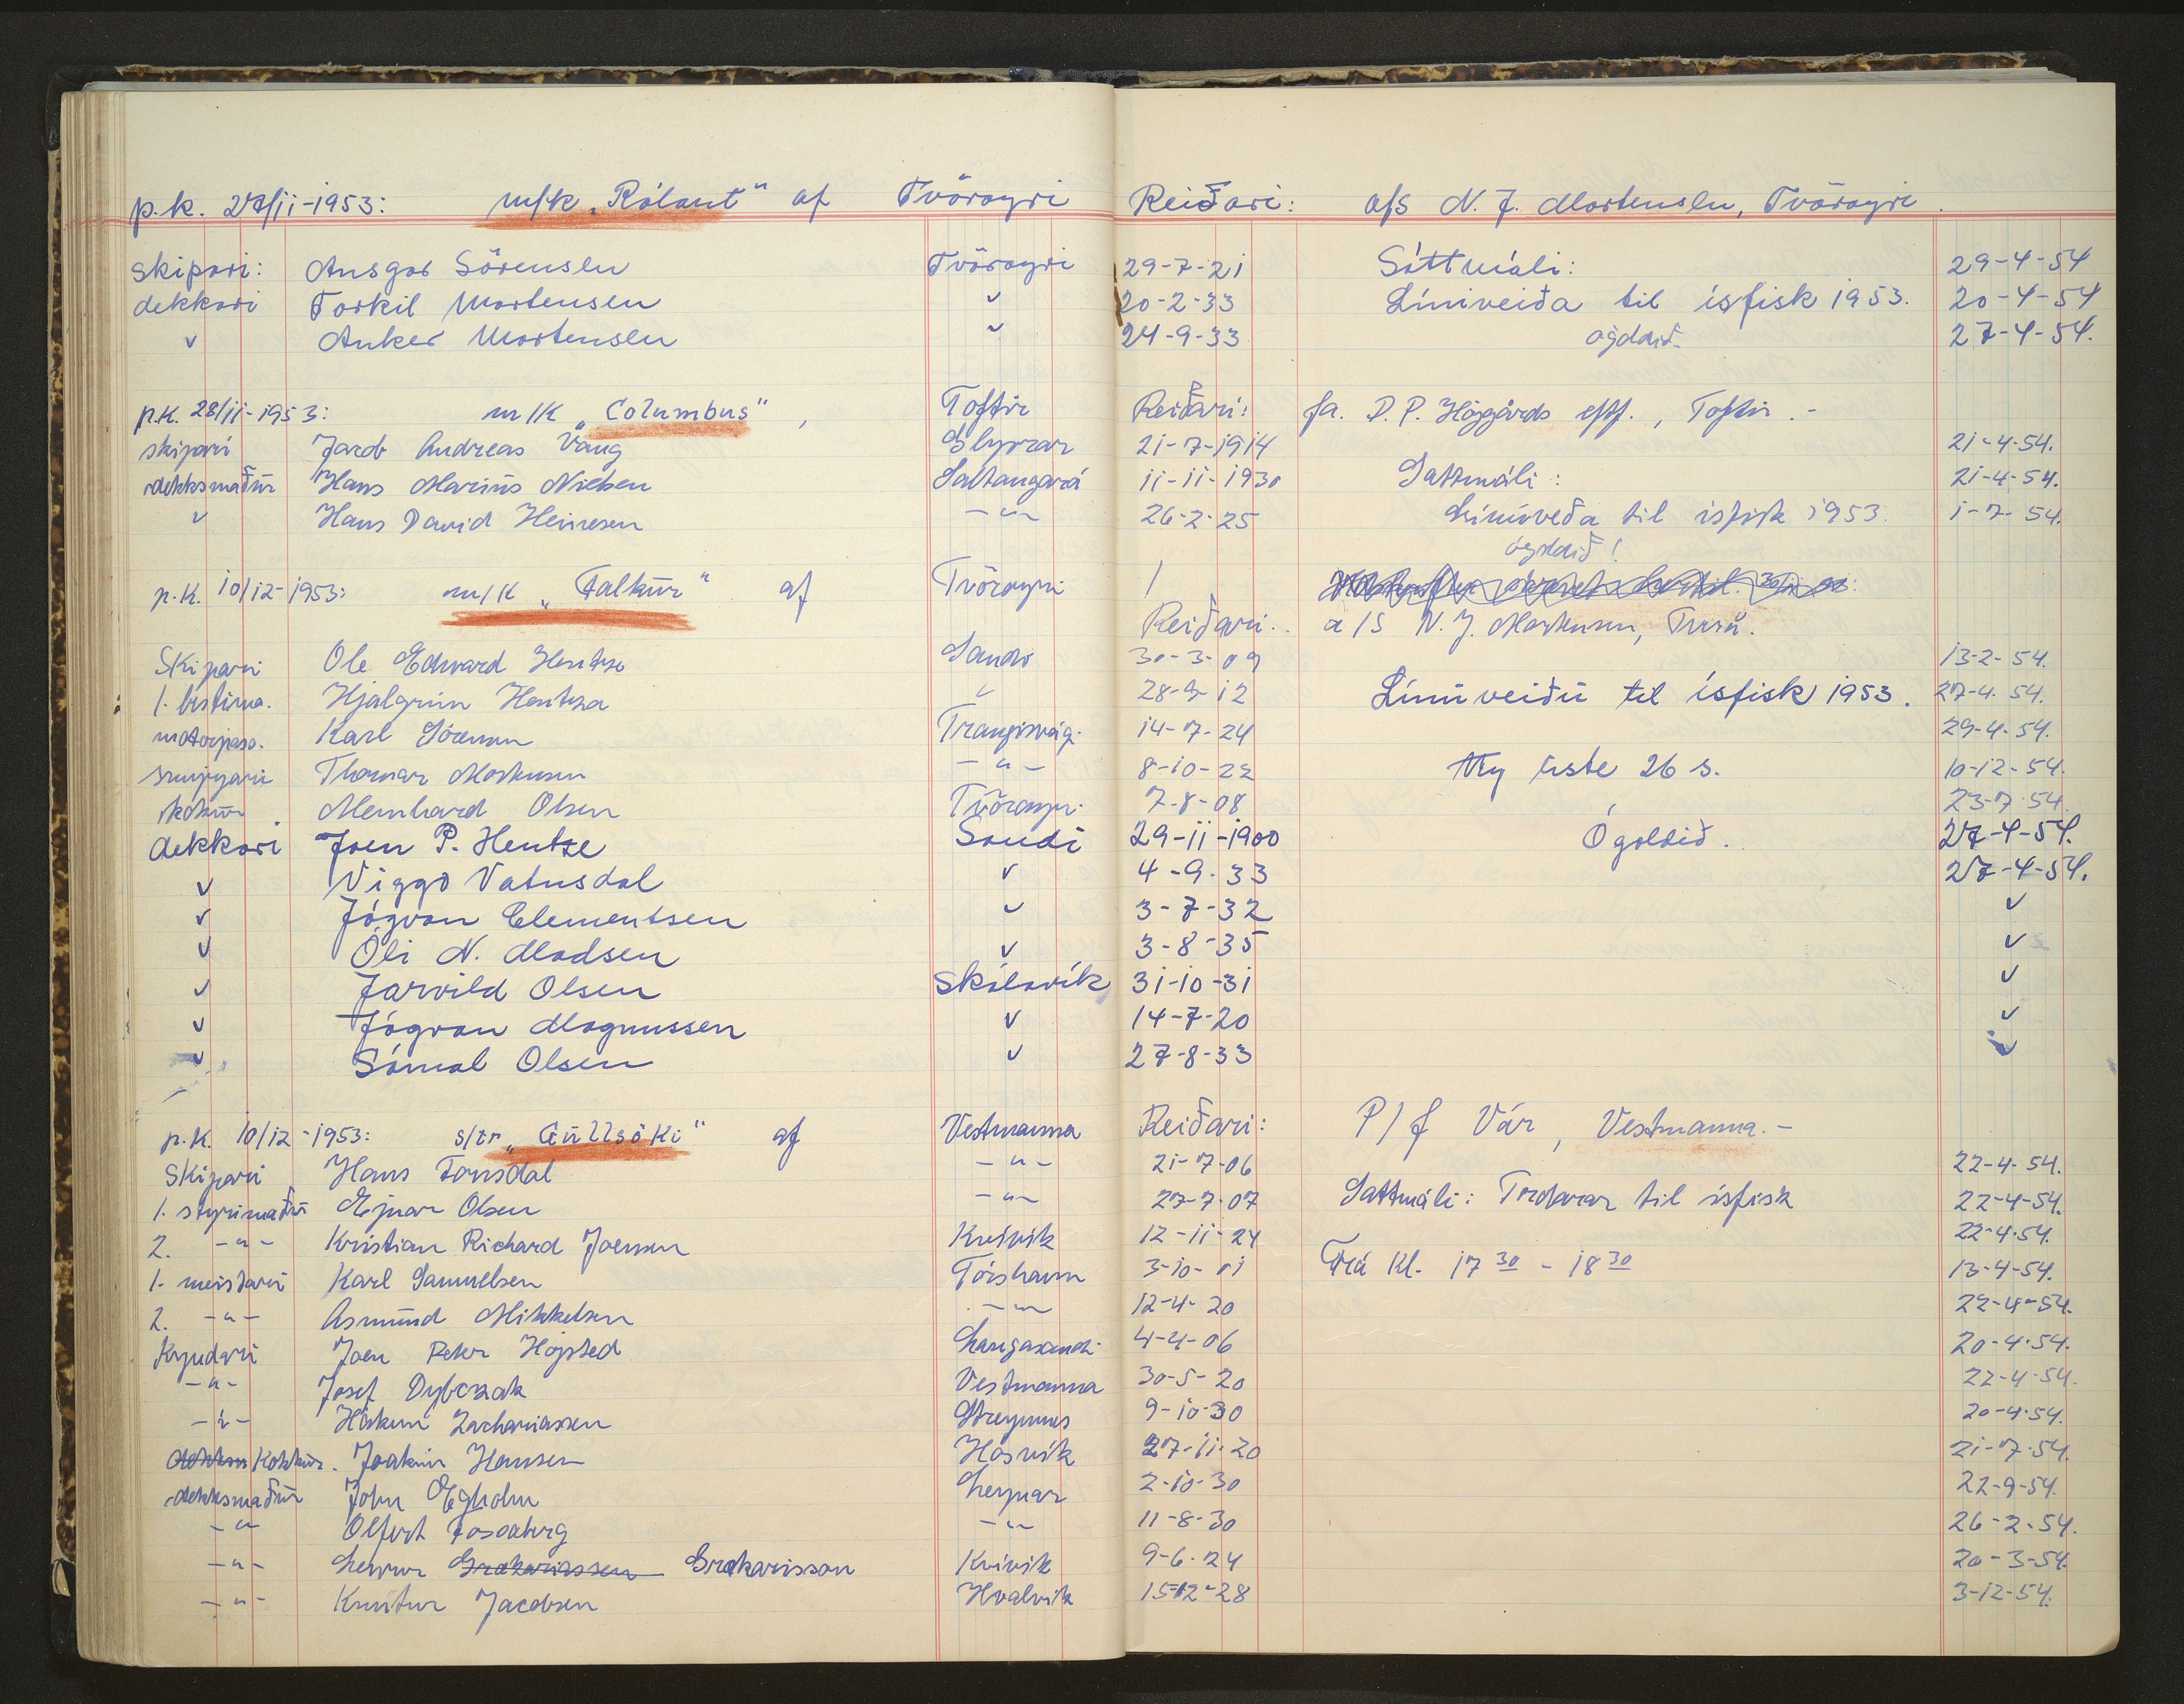 p.k. 27/11-1953: m/k „Rólant“ af Tvöroyri Reiðari: a/s N. J. Mortensen, Tvöroyri.
skipari: Ansgar Sörensen Tvöroyri 29-7-21 Sáttmáli: 29-4-54
dekkari Torkil Mortensen v 20-2-33 Línuveiða til ísfisk 1953. 20-4-54
v Anker Mortensen v 24-9-33 ógoldið. 27-4-54.
p.k. 28/11-1953: m/k „Columbus“, Toftir Reiðari: fa. D. P. Höggårds eftf., Toftir.-
skipari Jacob Andreas Vang Glyvrar 21-7-1914 21-4-54.
dekksmaður Hans Marius Nielsen Saltangará 11-11-1930 Sattmáli: 21-4-54.
v Hans David Heinesen -"- 26-2-25 Línuveða til ísfisk 1953. 1-7-54.
ógoldið!
p.k. 10/12-1953: m/k „Falkur“ af Tvöroyri /
Reiðari: a/s N. J. Mortensen, Tvør.
Skipari Ole Edvard Hentze Sandv 30-3-09 13-2-54.
1. bestima. Hjalgrim Hentze v 28-9-12 Línuveiðu til ísfisk 1953. 27-4-54.
motorpass. Karl Sörensen Trangisvág. 14-7-24 29-4-54.
smyrjari Thomas Mortensen -"- 8-10-22 Ny liste 26 s. 10-12-54.
kokur Meinhard Olsen Tvöroyri 7-8-08 23-7-54.
dekkari Joen P. Hentze Sandi 29-11-1900 Ógoldið. 27-4-54.
v Viggo Vatnsdal v 4-9-33 27-4-54.
v Jógvan Clementsen v 3-7-32 v
v Óli N. Madsen v 3-8-35 v
v Jarvild Olsen Skálavík 31-10-31 v
v Jógvan Magnussen v 14-7-20 v
v Sámal Olsen v 27-8-33 v
p.k. 10/12-1953: s/tr „Gullsóki“ af Vestmanna Reiðari: P/f Vár, Vestmanna.-
Skipari Hans Fonsdal -"- 21-7-06 22-4-54.
1. styrimaður Ejnar Olsen -"- 27-7-07 Sattmáli: Trolarar til ísfisk 22-4-54.
2. -"- Kristian Richard Joensen Kvívik 12-11-24 22-4-54.
1. meistari Karl Samuelsen Tórshavn 3-10-01 Frá Kl. 17 30 - 18 30 13-4-54.
2. -"- Asmund Mikkelsen -"- 12-4-20 22-4-54.
Kyndari Joen Peter Højsted Langasandi 4-4-06 20-4-54.
-"- Josef Dybczak Vestmanna 30-5-20 22-4-54.
-"- Hákun Zachariassen Streymnes 9-10-30 20-4-54.
Kokkur. Joakim Hansen Hósvík 27-11-20 21-7-54.
dekksmaður John Egholm Leynar 2-10-30 22-9-54.
-"- Olfert Fossaberg -"- 11-8-30 26-2-54.
-"- Grakarisson Kvívik 9-6-24 20-3-54.
-"- Kruntur Jacobsen Hvalvik 15-12-28 3-12-54.